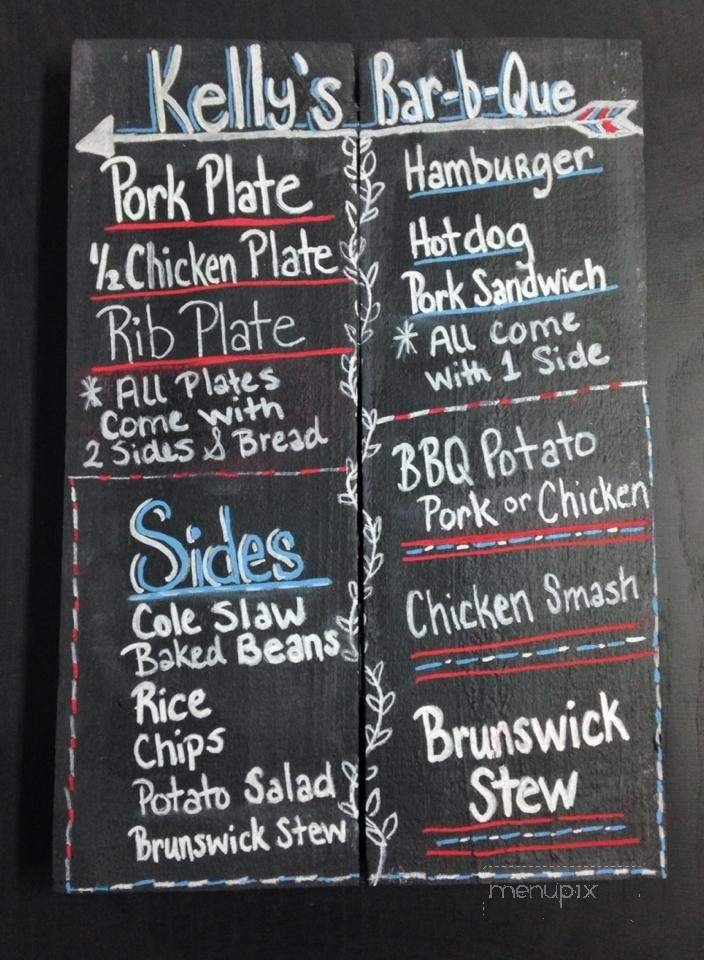 Kelly's Bar-b-Que
Pork Plate
½ Chicken Plate
Rib Plate
* All Plates
Come with
2 Sides & Bread
Sides
Cole Slaw
Baked Beans
Rice
Chips
Potato Salad
Brunswick Stew
Hamburger
Hotdog
Pork Sandwich
* All Come
with 1 Side
BBQ Potato
Pork or Chicken
Chicken Smash
Brunswick
Stew
menupix